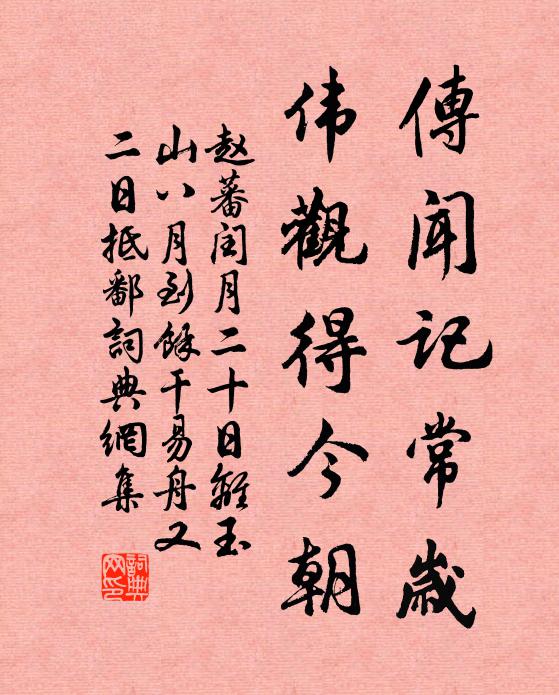 傳聞記常歲
伟觀得今朝
赵蕃闰月二十日離玉
山八月到餘干易舟又
二日抵鄱詞典網集
詞典網印